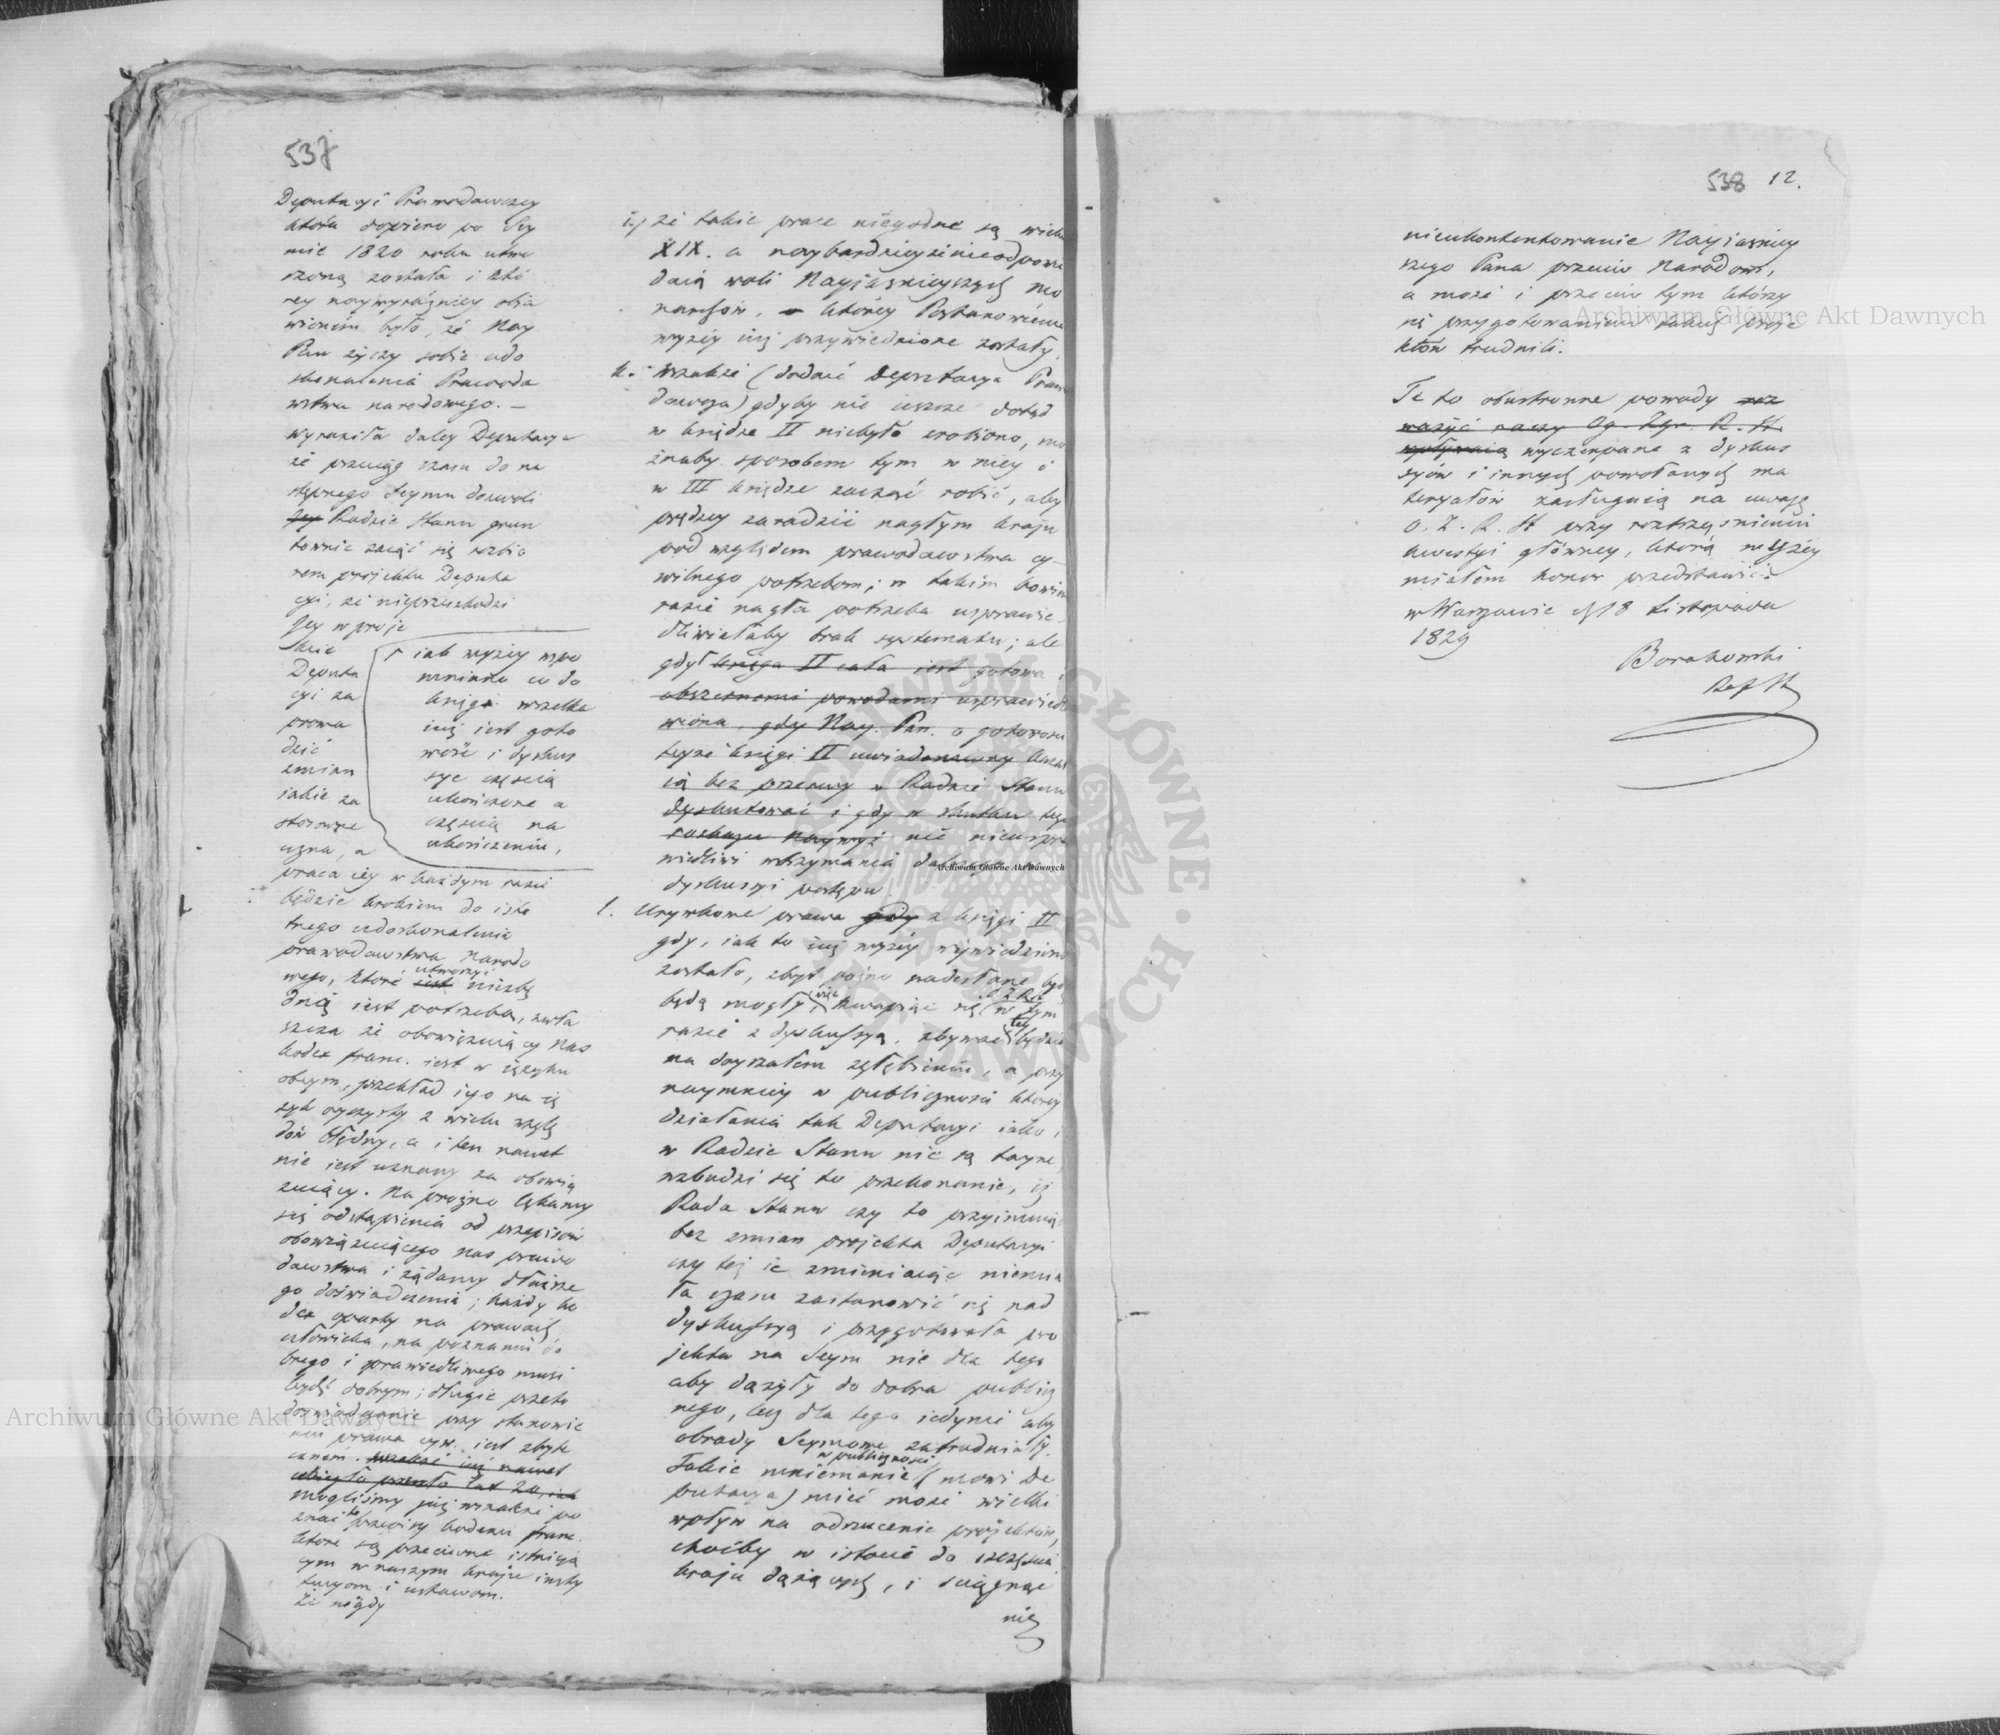 537
Deputacyi Prawodawczey
która dopiero po Sey
mie 1820 roku utwo
rzoną została i któ
rey naywyraźniey obia
wionem było, że Nay
Pan życzy sobie udo
skonalenia Prawoda
wstwa narodowego. —
wyraziła daley Deputacya
że przeciąg czasu do na
stępnego Seymu dozwoli
Radzie Stanu grun
townie zaiąć się rozbio
rem projektu Deputa
cyi, że nieprzeszkodzi
Jey w proje
kcie
Deputa
cyi za
prowa
dzić
zmian
iakie za
stosowne
uzna, a
praca iey w każdym razie
będzie krokiem do isto
tnego udoskonalenia
prawodawstwa narodo
wego, które utworzyć niezbę
dną iest potrzebą, zwła
szcza że obowiązuiący nas
kodex franc. iest w ięzyku
obcym, przekład iego na ię
zyk oyczysty z wielu wzglę
dów błędny, a i ten nawet
nie iest uznany za obowią
zuiący. Na prożno lękamy
się odstąpienia od przepisów
obowiązuiącego nas prawo
dawstwa i żądamy dłuższe
go doświadczenia; każdy ko
dex oparty na prawach
człowieka, na poznaniu do
brego i sprawiedliwego musi
bydź dobrym; długie przeto
doświadczanie przy stanowie
niu prawa cyw. iest zbyte
cznem. wszakże iuż nawet
ubiegło przeszło lat 20, iak
mogliśmy już wszakże po
znać te przepisy kodexu franc.
które są przeciwne istnieią
cym w naszym kraju insty
tucyom i ustawom.
że nigdy
iak wyżey wspo
mniano co do
księgi wszelka
iuż iest goto
wość i dyskus
sye częścią
ukończone a
częścią na
ukończeniu,
i.) że takie prace niegodne są wieku
XIX. a naybardziey że nieodpowia
daią woli Nayjaśnieyszych Mo
narchów, którey Postanowienia
wyżey iuż przywiedzione zostały.
k. Wszakże (dodaie Deputacya Prawo
dawcza) gdyby nic ieszcze dotąd
w księdze II niebyło zrobiono, mo
żnaby sposobem tym w niey i
w III księdze zacząć robić, aby
prędzey zaradzić nagłym kraju
pod względem prawodawstwa cy-
wilnego potrzebom; w takim bowiem
razie nagła potrzeba usprawie
dliwiałaby brak systematu; ale
gdy księga II cała iest gotowa i
obszernemi powodami usprawiedli
wiona, gdy Nay. Pan. o gotowości
teyże księgi II uwiadomiony kazał
ią bez przerwy w Radzie Stanu
dyskutować i gdy w skutku tego
rozkazu Naywyż nic nieuspra
wiedliwi wstrzymania dalszego
dyskussyi postępu.
l. Urywkowe prawa gdy z księgi II
gdy, iak to iuż wyżey wywiedziono
zostało, zbyt późno nadesłane bydź
będą mogły, więc kwapiąc się w tym
razie z dyskussyą, zbywać tey będzie
na doyrzałem zgłębieniu, a przy
naymniey w publiczności którey
działania tak Deputacyi iako i
w Radzie Stanu nie są tayne,
wzbudzi się to przekonanie, iż
Rada Stanu czy to przyimuiąc
bez zmian projekta Deputacyi
czy też ie zmieniaiąc niemia
ła czasu zastanowić się nad
dyskussyą i przygotowała pro
jekta na Seym nie dla tego
aby dążyły do dobra publicz
nego, lecz dla tego iedynie aby
obrady Seymowe zatrudniały.
Takie mniemanie w publiczności (mowi De
putacya) mieć może wielki
wpływ na odrzucenie projektów,
choćby w istocie do szczęścia
kraju dążących, i ściągnąć
nie
538 12.
nieukontentowanie Nayjaśniey
szego Pana przeciw Narodowi,
a może i przeciw tym którzy
się przygotowaniem takich proje
któw trudnili.
Te to obustronne powody
ważyć raczy Og. Zgr. R. St.
wyczerpane z dyskus
syów i innych powołanych ma
teryałów zasługuią na uwagę
O. Z. R. St przy roztrząśnieniu
kwestyi główney, którą wyżey
miałem honor przedstawić.
w Warszawie d. 18 Listopada
1829
Borakowski
Ref St